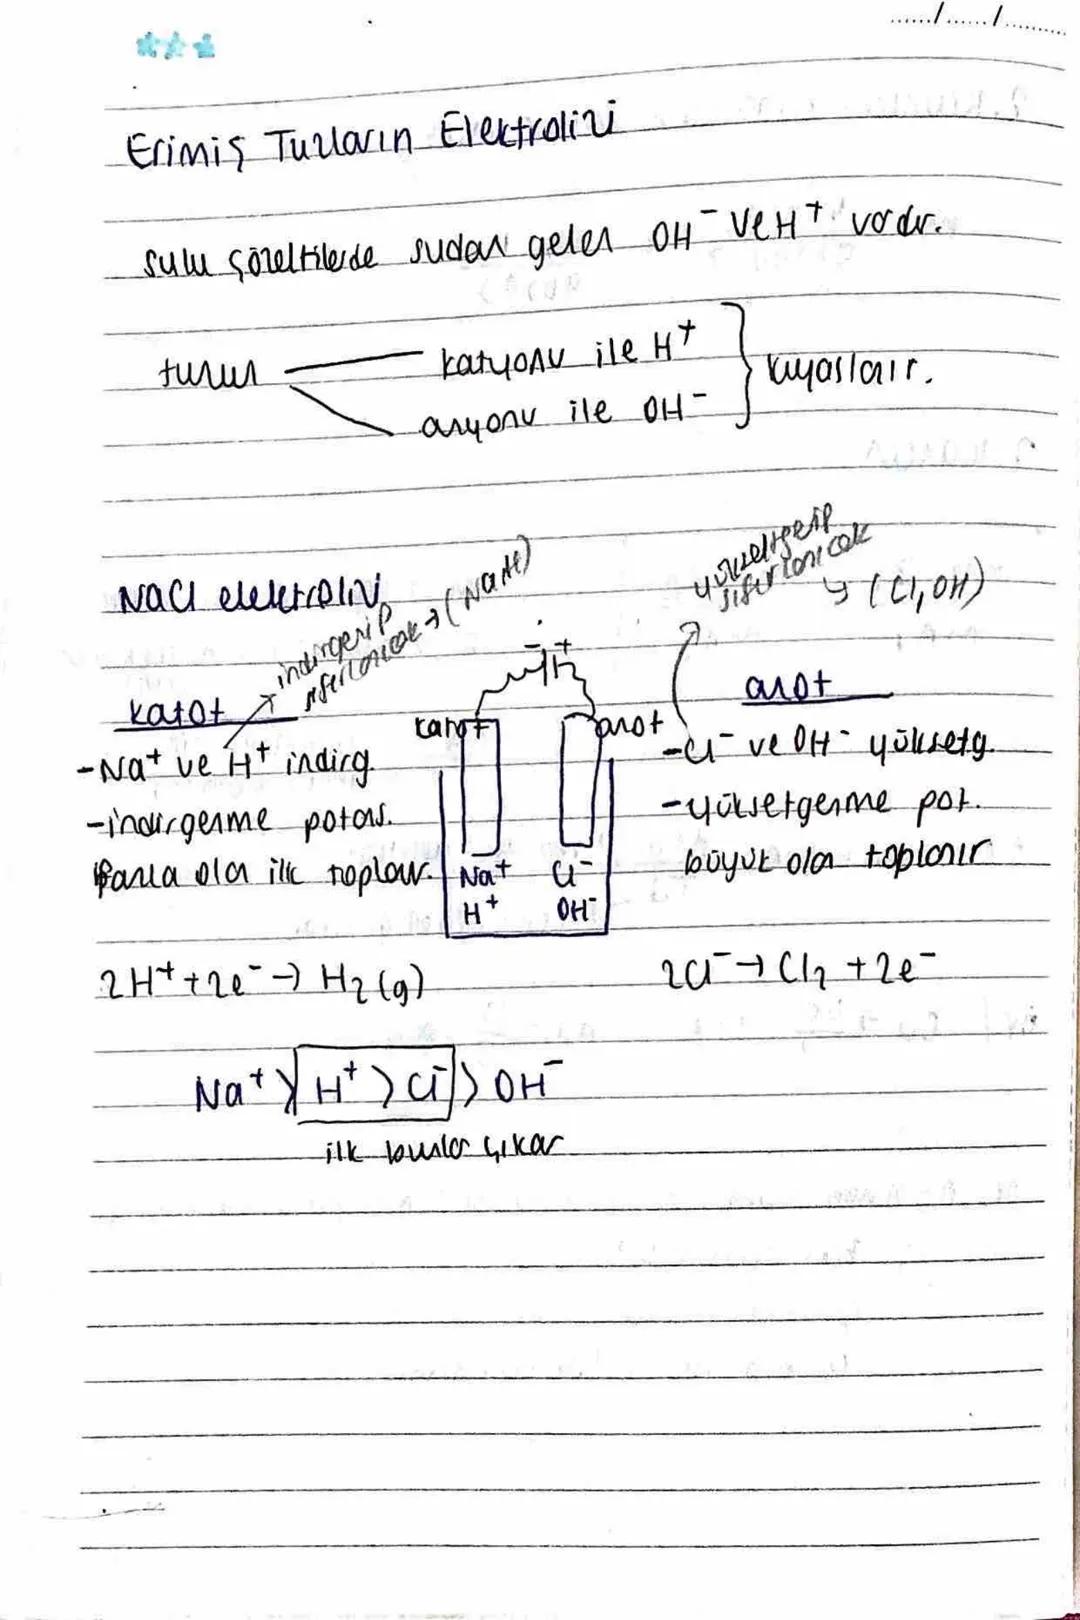 ....../....../..........
Erimiş Tuzların Elektrolizi
sulu çözeltilerde sudan gelen OH⁻ ve H⁺ vardır.
tuzun katyonu ile H⁺
anyonu ile OH⁻
kıyaslanır.
NaCl elektrolizi
indirgenip
sıfırlanıcak → (Na, H)
yükseltgenip
sıfırlanıcak
↳ (Cl, OH)
katot
- Na⁺ ve H⁺ indirg.
- indirgenme potans.
fazla olan ilk toplanır.
- +
katot
anot
Na⁺ Cl⁻
H⁺ OH⁻
anot
- Cl⁻ ve OH⁻ yükseltg.
- yükseltgenme pot.
büyük olan toplanır
2H⁺ + 2e⁻ → H₂(g)
2Cl⁻ → Cl₂ + 2e⁻
Na⁺ > H⁺ > Cl⁻ > OH⁻
ilk bunlar çıkar